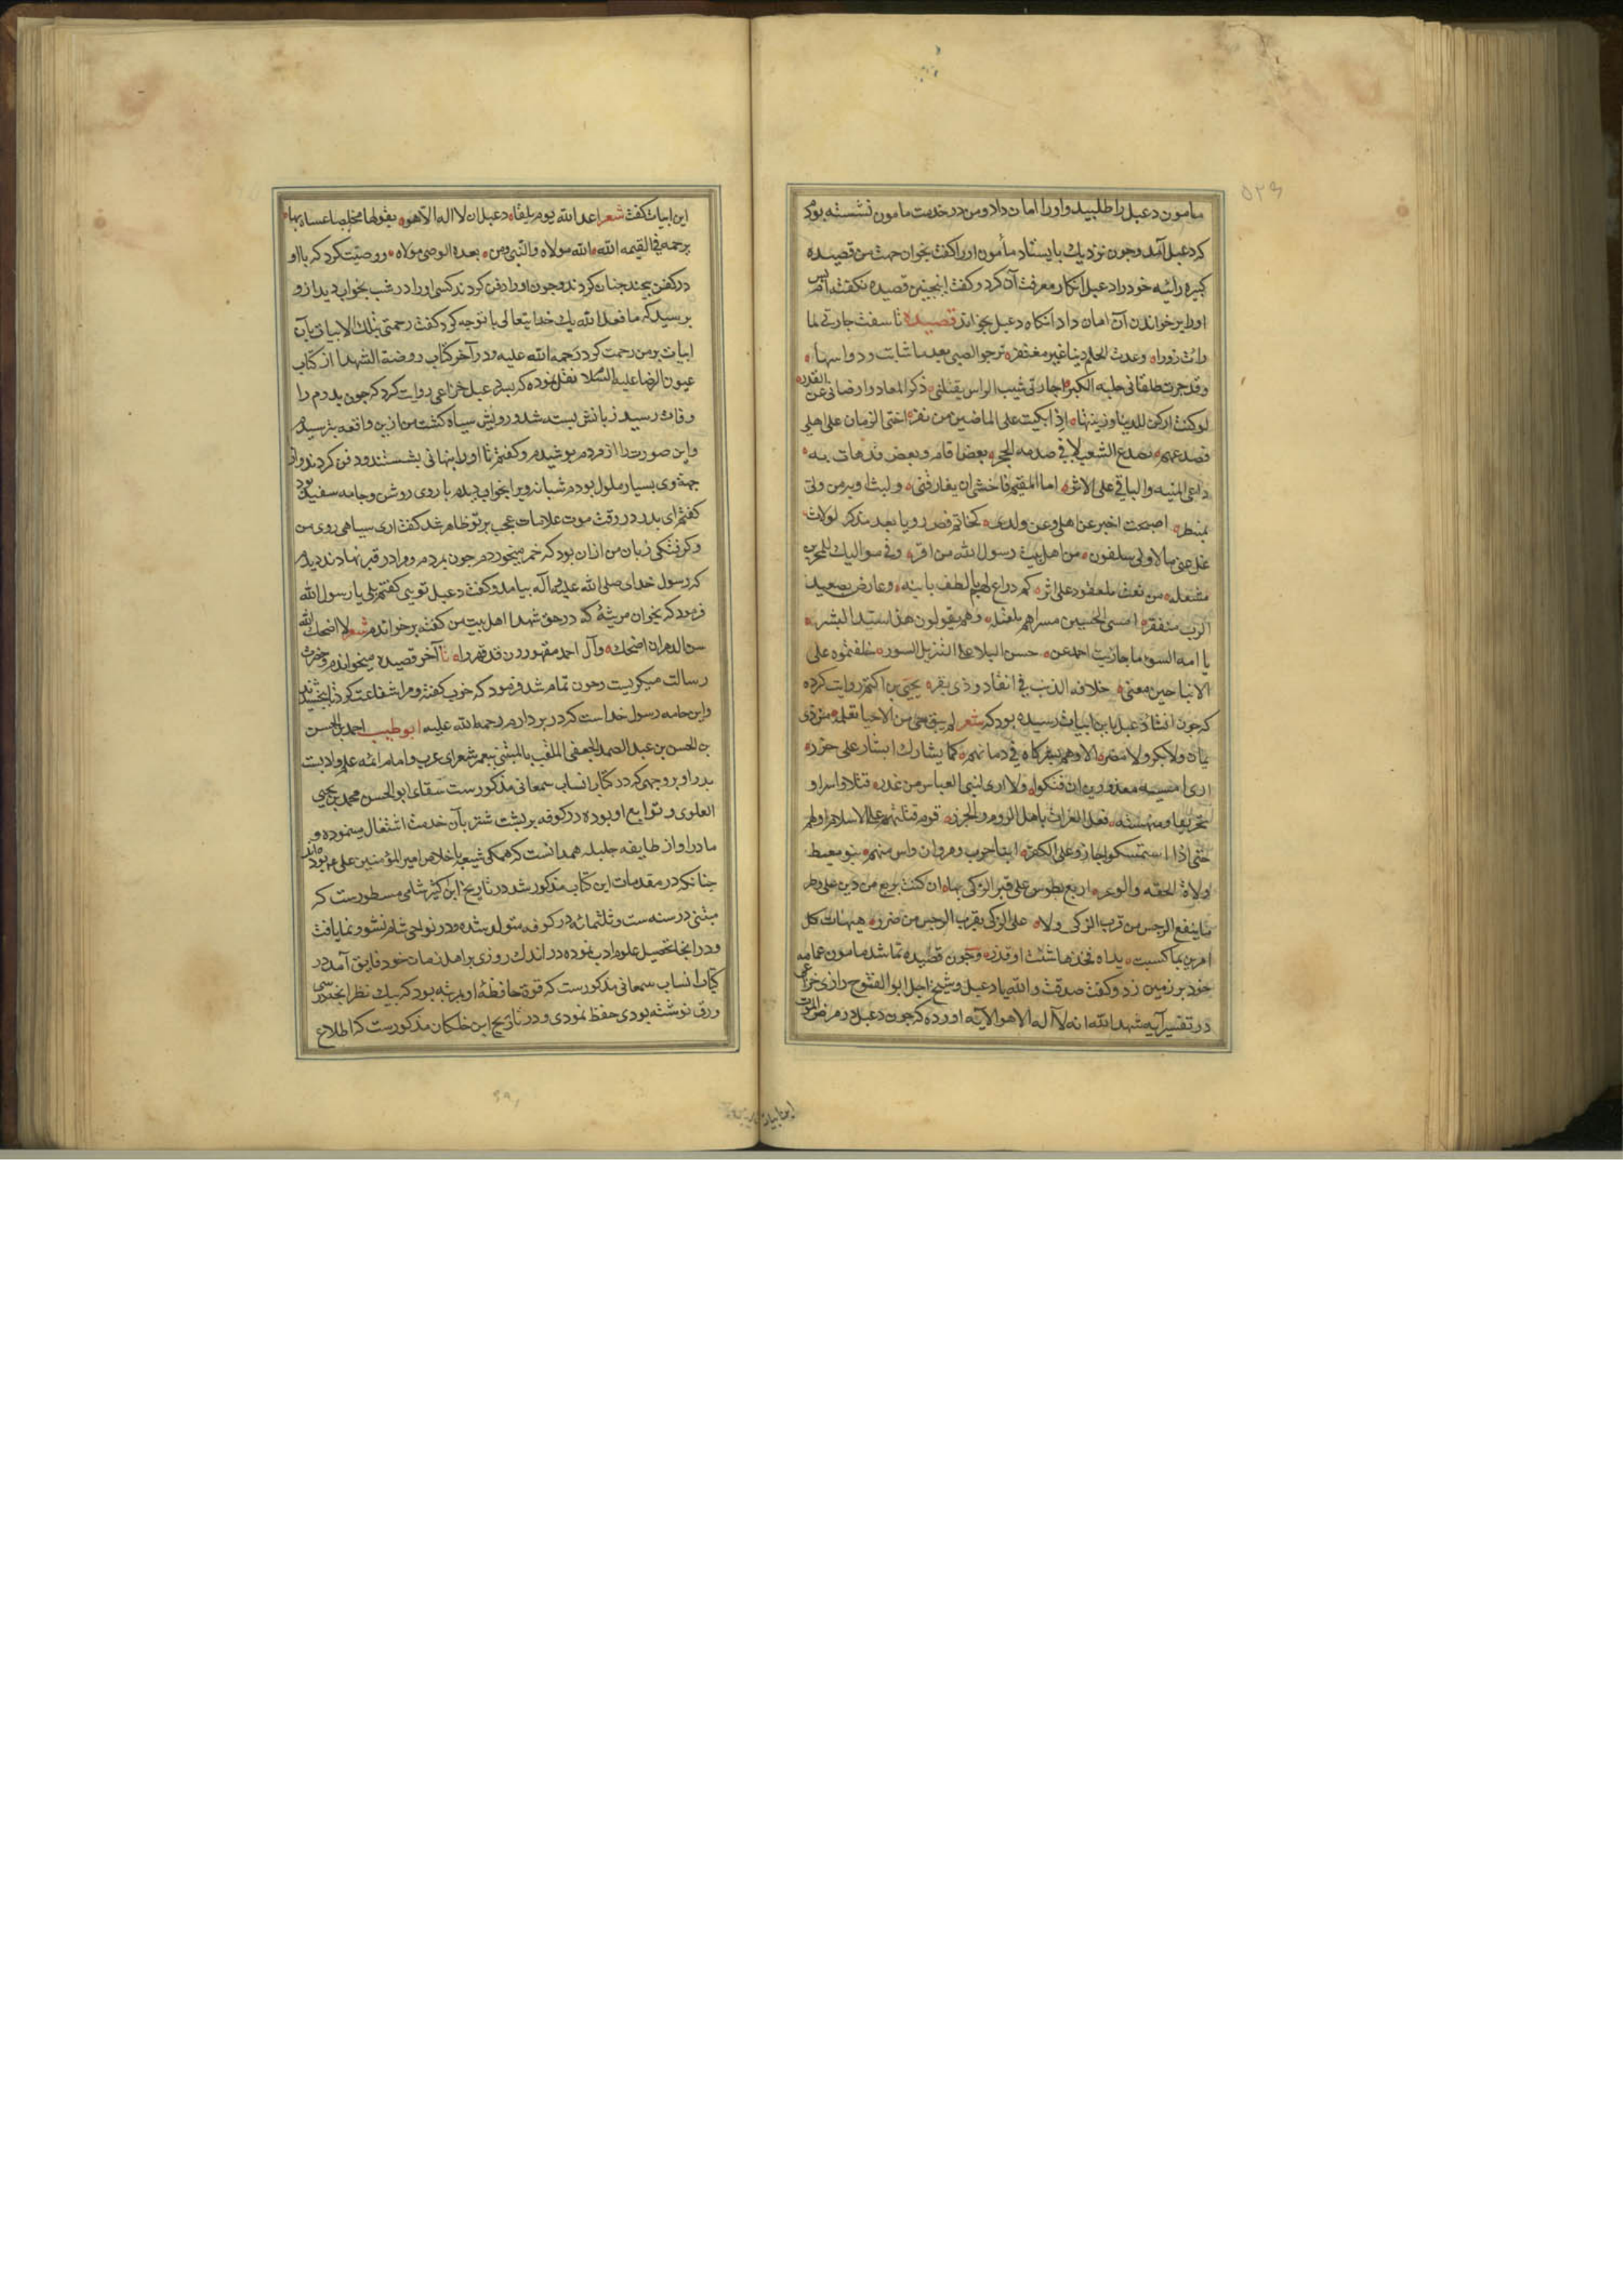 مامون دعبل را طلبید و او را امان داد و من در خدمت مامون نشسته بودم
که دعبل آمد و چون نزدیک بایستاد مأمون او را کفت بخوان جهت من قصیده
کبیره رائیه خود را دعبل انکار معرفت آن کرد و کفت اینجنین قصیده نکفته‌ام پس
او را بر خواندن آن امان داد آنکاه دعبل بخواند قصیده تاسفت جارتی لما
رات زوراه وعدت الحلم دینا غیر مغتفره ترجو الصبی بعد ما شابت ذوایبها
وقد جرت طلقا فی حلبه الکبره اجارتی شیب الراس یقتلنی ذکر المعاد وارضانی عن القدره
لو کنت ارکن للدنیا وزینتهاه اذا بکیت علی الماضین من نفره اخنی الزمان علی اهلی
فصدعهم تصدع الشعب لاقی صدمه الحجره بعض اقام وبعض قد هات به
داعی المنیه والباقی علی الاثره اما المقیم فاخشی ان یفارقنی ولیت اوبه من ولی
بمنتظره اصبحت اخبر عن اهلی وعن ولدی کحالم قص رویا بعد مدکره لولات
من اهل بیت رسول الله من اقره وفی موالیک للمحزین
مشغله من تعقد علی اثره کم ذراع لهم بالطف بانیه وعارض بصعید
الترب منعفره امسی الحسین مسراهم لمقتله وهم یقولون هذا سید البشره
یا امه السوء ما جازیت احمد عن حسن البلا علی التنزیل السوره خلفتموه علی
الابنا حین مضی خلافه الذئب فی انفاد ذی بقره یحیی بن اکثم روایت کرده
که چون انشاد دعبل باین ابیات رسیده بود که شعر لم یبق حی من الاحیا نعلمه من ذی
یمان ولا بکر ولا مضره الا وهم شرکاه فی دمائهم کما یشارک ایسار علی جزره
اری امیه معذورین ان قتلوا ولا اری لبنی العباس من عذره قتلا واسرا و
تحریقا ومنهبه فعل الغزات باهل الروم والخزره قوم قتلتم علی الاسلام اولهم
حتی اذا استمسکوا جازو علی الکفره ابنا حرب ومروان واسرتهم بنو معیط
ولاة الحقد والوغره اربع بطوس علی قبر الزکی بهاه ان کنت تربع من دین علی وطر
ما ینفع الرجس من قرب الزکی ولاه علی الزکی بقرب الرجس من ضرره هیهات کل
امرء بما کسبت یداه فخذ ما شئت او فذره و چون قصیده تمام شد مامون عمامه
خود بر زمین زد و کفت صدقت والله یا دعبل و شیخ اجل ابو الفتوح رازی خزاعی
در تفسیر آیه شهد الله انه لا اله الا هو الآیه اورده که چون دعبل در مرض الموت
این ابیات
این ابیات کفت شعر اعد الله یوم یلقاه دعبل ان لا اله الا هو یقولها مخلصا عساه بها
یرحمه فی القیمه الله الله مولاه والنبی ومن بعده الوصی مولاه و وصیت کرد که با او
در کفن بیجند جنان کردند و چون او را دفن کردند کسی او را در شب بخواب دید از و
برسید که ما فعل الله بک خدا یتعالی با تو چه کرد کفت رحمتی بتلک الابیات بآن
ابیات بر من رحمت کرد رحمه الله علیه و در آخر کتاب روضة الشهدا از کتاب
عیون الرضا علیه السلا نقل نموده که بسر دعبل خزاعی روایت کرد که چون بدرم را
وفات رسید زبانش بسته شد و رویش سیاه کشت من ازین واقعه بترسیدم
و این صورت را از مردم بوشیدم و کفتم تا او را بنهانی بشستند و دفن کردند و از
جهة وی بسیار ملول بودم شبانه ویرا بخواب دیدم با روی روشن و جامه سفید بود
کفتم ای بدر در وقت موت علامات عجب بر تو ظاهر شد کفت اری سیاهی روی من
و کرفتکی زبان من ازان بود که خمر میخوردم چون بمردم و مرا در قبر نهادند دیدم
که رسول خدای صلی الله علیه و آله بیامد و کفت دعبل تویی کفتم بلی یا رسول الله
فرمود که بخوان مرثیهٔ که در حق شهدا اهل بیت من کفته برخواندم شعر لا اضحک الله
سن الدهر ان اضحکه وآل احمد مقهورون قد قهرواه تا آخر قصیده میخواندم و حضرت
رسالت میکریست و چون تمام شد فرمود که خوب کفتی و مرا شفاعت کرد تا بخشیدند
و این جامه رسول خداست که در بر دارم رحمه الله علیه ابو طیب احمد بن الحسن
بن الحسن بن عبد الصمد الجعفی الملقب بالمتنبی شعرای عرب و امام ائمه علم و ادبست
بدر او بر وجهی که در کتاب انساب سمعانی مذکورست سقای ابو الحسن محمد بن یحیی
العلوی و توابع او بوده در کوفه بر بشت شتر بآن خدمت اشتغال مینموده و
مادر او از طایفه جلیله همدانست که همکی شیعه با خلاص امیر المؤمنین علی بوده‌اند
چنانکه در مقدمات این کتاب مذکور شد در تاریخ ابن کثیر شامی مسطورست که
متنبی در سنه ست و ثلثمائه در کوفه متولد شده و در نواحی شام نشو و نما یافت
و در انجا تحصیل علوم ادب نموده در اندک روزی بر اهل زمان خود فایق آمد در
کتاب انساب سمعانی مذکورست که قوة حافظهٔ او بمرتبه بود که بیک نظر انچه سی
ورق نوشته بودی حفظ نمودی و در تاریخ ابن خلکان مذکورست که اطلاع